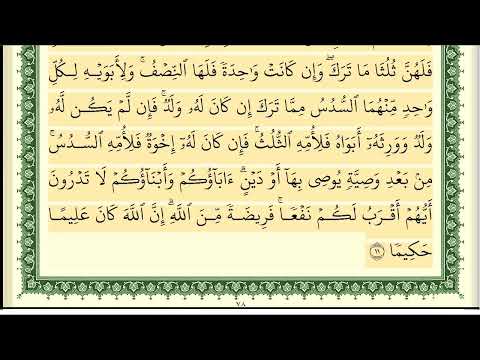 فَلَهُنَّ ثُلُثَا مَا تَرَكَۖ وَإِن كَانَتۡ وَٰحِدَةٗ فَلَهَا ٱلنِّصۡفُۚ وَلِأَبَوَيۡهِ لِكُلِّ
وَٰحِدٖ مِّنۡهُمَا ٱلسُّدُسُ مِمَّا تَرَكَ إِن كَانَ لَهُۥ وَلَدٞۚ فَإِن لَّمۡ يَكُن لَّهُۥ
وَلَدٞ وَوَرِثَهُۥٓ أَبَوَاهُ فَلِأُمِّهِ ٱلثُّلُثُۚ فَإِن كَانَ لَهُۥٓ إِخۡوَةٞ فَلِأُمِّهِ ٱلسُّدُسُۚ
مِنۢ بَعۡدِ وَصِيَّةٖ يُوصِي بِهَآ أَوۡ دَيۡنٍۗ ءَابَآؤُكُمۡ وَأَبۡنَآؤُكُمۡ لَا تَدۡرُونَ
أَيُّهُمۡ أَقۡرَبُ لَكُمۡ نَفۡعٗاۚ فَرِيضَةٗ مِّنَ ٱللَّهِۗ إِنَّ ٱللَّهَ كَانَ عَلِيمًا
حَكِيمٗا ١١
٧٨